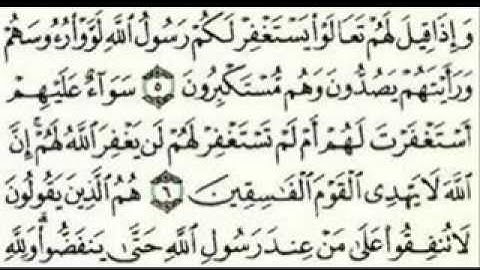 وَإِذَا قِيلَ لَهُمْ تَعَالَوْا۟ يَسْتَغْفِرْ لَكُمْ رَسُولُ ٱللَّهِ لَوَّوْا۟ رُءُوسَهُمْ
وَرَأَيْتَهُمْ يَصُدُّونَ وَهُم مُّسْتَكْبِرُونَ ٥ سَوَآءٌ عَلَيْهِمْ
أَسْتَغْفَرْتَ لَهُمْ أَمْ لَمْ تَسْتَغْفِرْ لَهُمْ لَن يَغْفِرَ ٱللَّهُ لَهُمْ ۚ إِنَّ
ٱللَّهَ لَا يَهْدِى ٱلْقَوْمَ ٱلْفَـٰسِقِينَ ٦ هُمُ ٱلَّذِينَ يَقُولُونَ
لَا تُنفِقُوا۟ عَلَىٰ مَنْ عِندَ رَسُولِ ٱللَّهِ حَتَّىٰ يَنفَضُّوا۟ ۗ وَلِلَّهِ